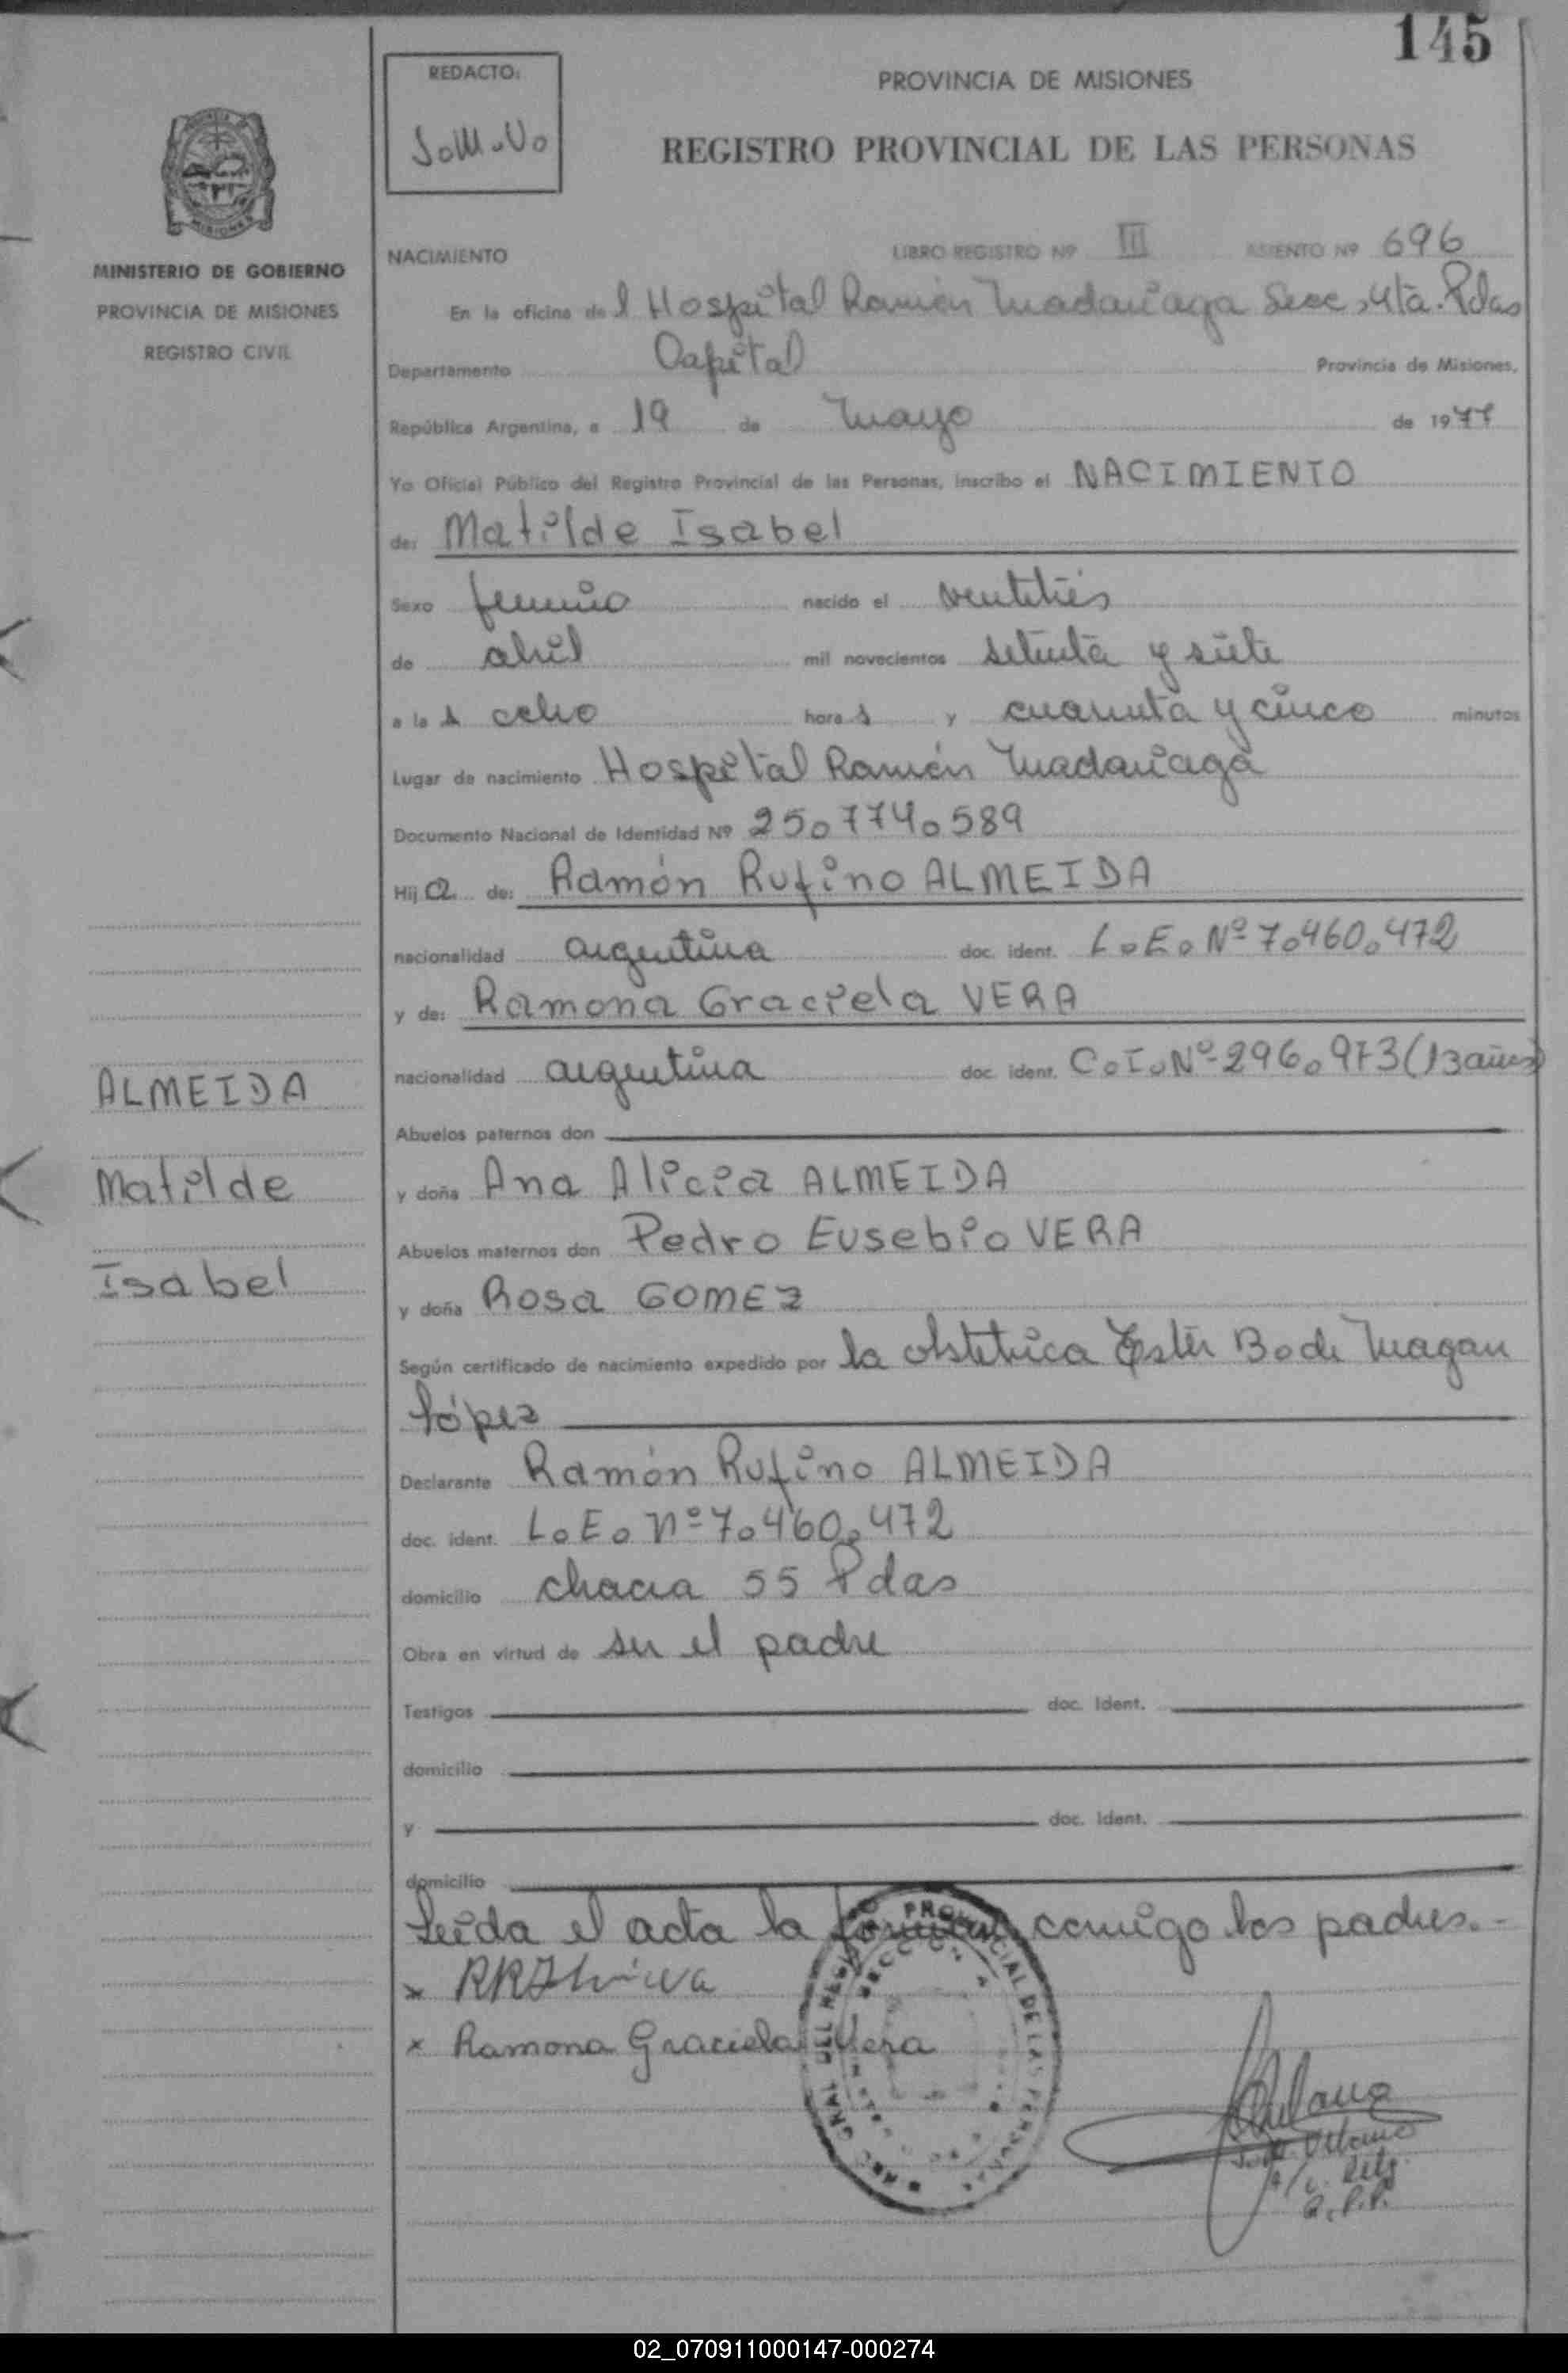 145
REDACTO:
J.M.V.
PROVINCIA DE MISIONES
REGISTRO PROVINCIAL DE LAS PERSONAS
MINISTERIO DE GOBIERNO
PROVINCIA DE MISIONES
REGISTRO CIVIL
NACIMIENTO LIBRO REGISTRO Nº III ASIENTO Nº 696
En la oficina del Hospital Ramón Madariaga Secc. 4ta. Pdas
Departamento Capital Provincia de Misiones,
República Argentina, a 19 de Mayo de 1977
Yo Oficial Público del Registro Provincial de las Personas, inscribo el NACIMIENTO
de: Matilde Isabel
Sexo femenino nacido el veintitrés
de abril mil novecientos setenta y siete
a las ocho horas y cuarenta y cinco minutos
Lugar de nacimiento Hospital Ramón Madariaga
Documento Nacional de Identidad Nº 25.774.589
Hija de: Ramón Rufino ALMEIDA
nacionalidad argentina doc. ident. L.E. Nº 7.460.472
y de: Ramona Graciela VERA
nacionalidad argentina doc. ident. C.I. Nº 296.973 (13 años)
Abuelos paternos don
y doña Ana Alicia ALMEIDA
Abuelos maternos don Pedro Eusebio VERA
y doña Rosa GOMEZ
Según certificado de nacimiento expedido por la obstetrica Ester Bode Magan
López
Declarante Ramón Rufino ALMEIDA
doc. ident. L.E. nº 7.460.472
domicilio chacra 55 Pdas
Obra en virtud de ser el padre
Testigos doc. ident.
domicilio
y doc. ident.
domicilio
Leída el acta la firman conmigo los padres.-
x
x Ramona Graciela Vera
ALMEIDA
Matilde
Isabel
PROVINCIAL DE LAS PERSONAS
R.P.P.
02_070911000147-000274